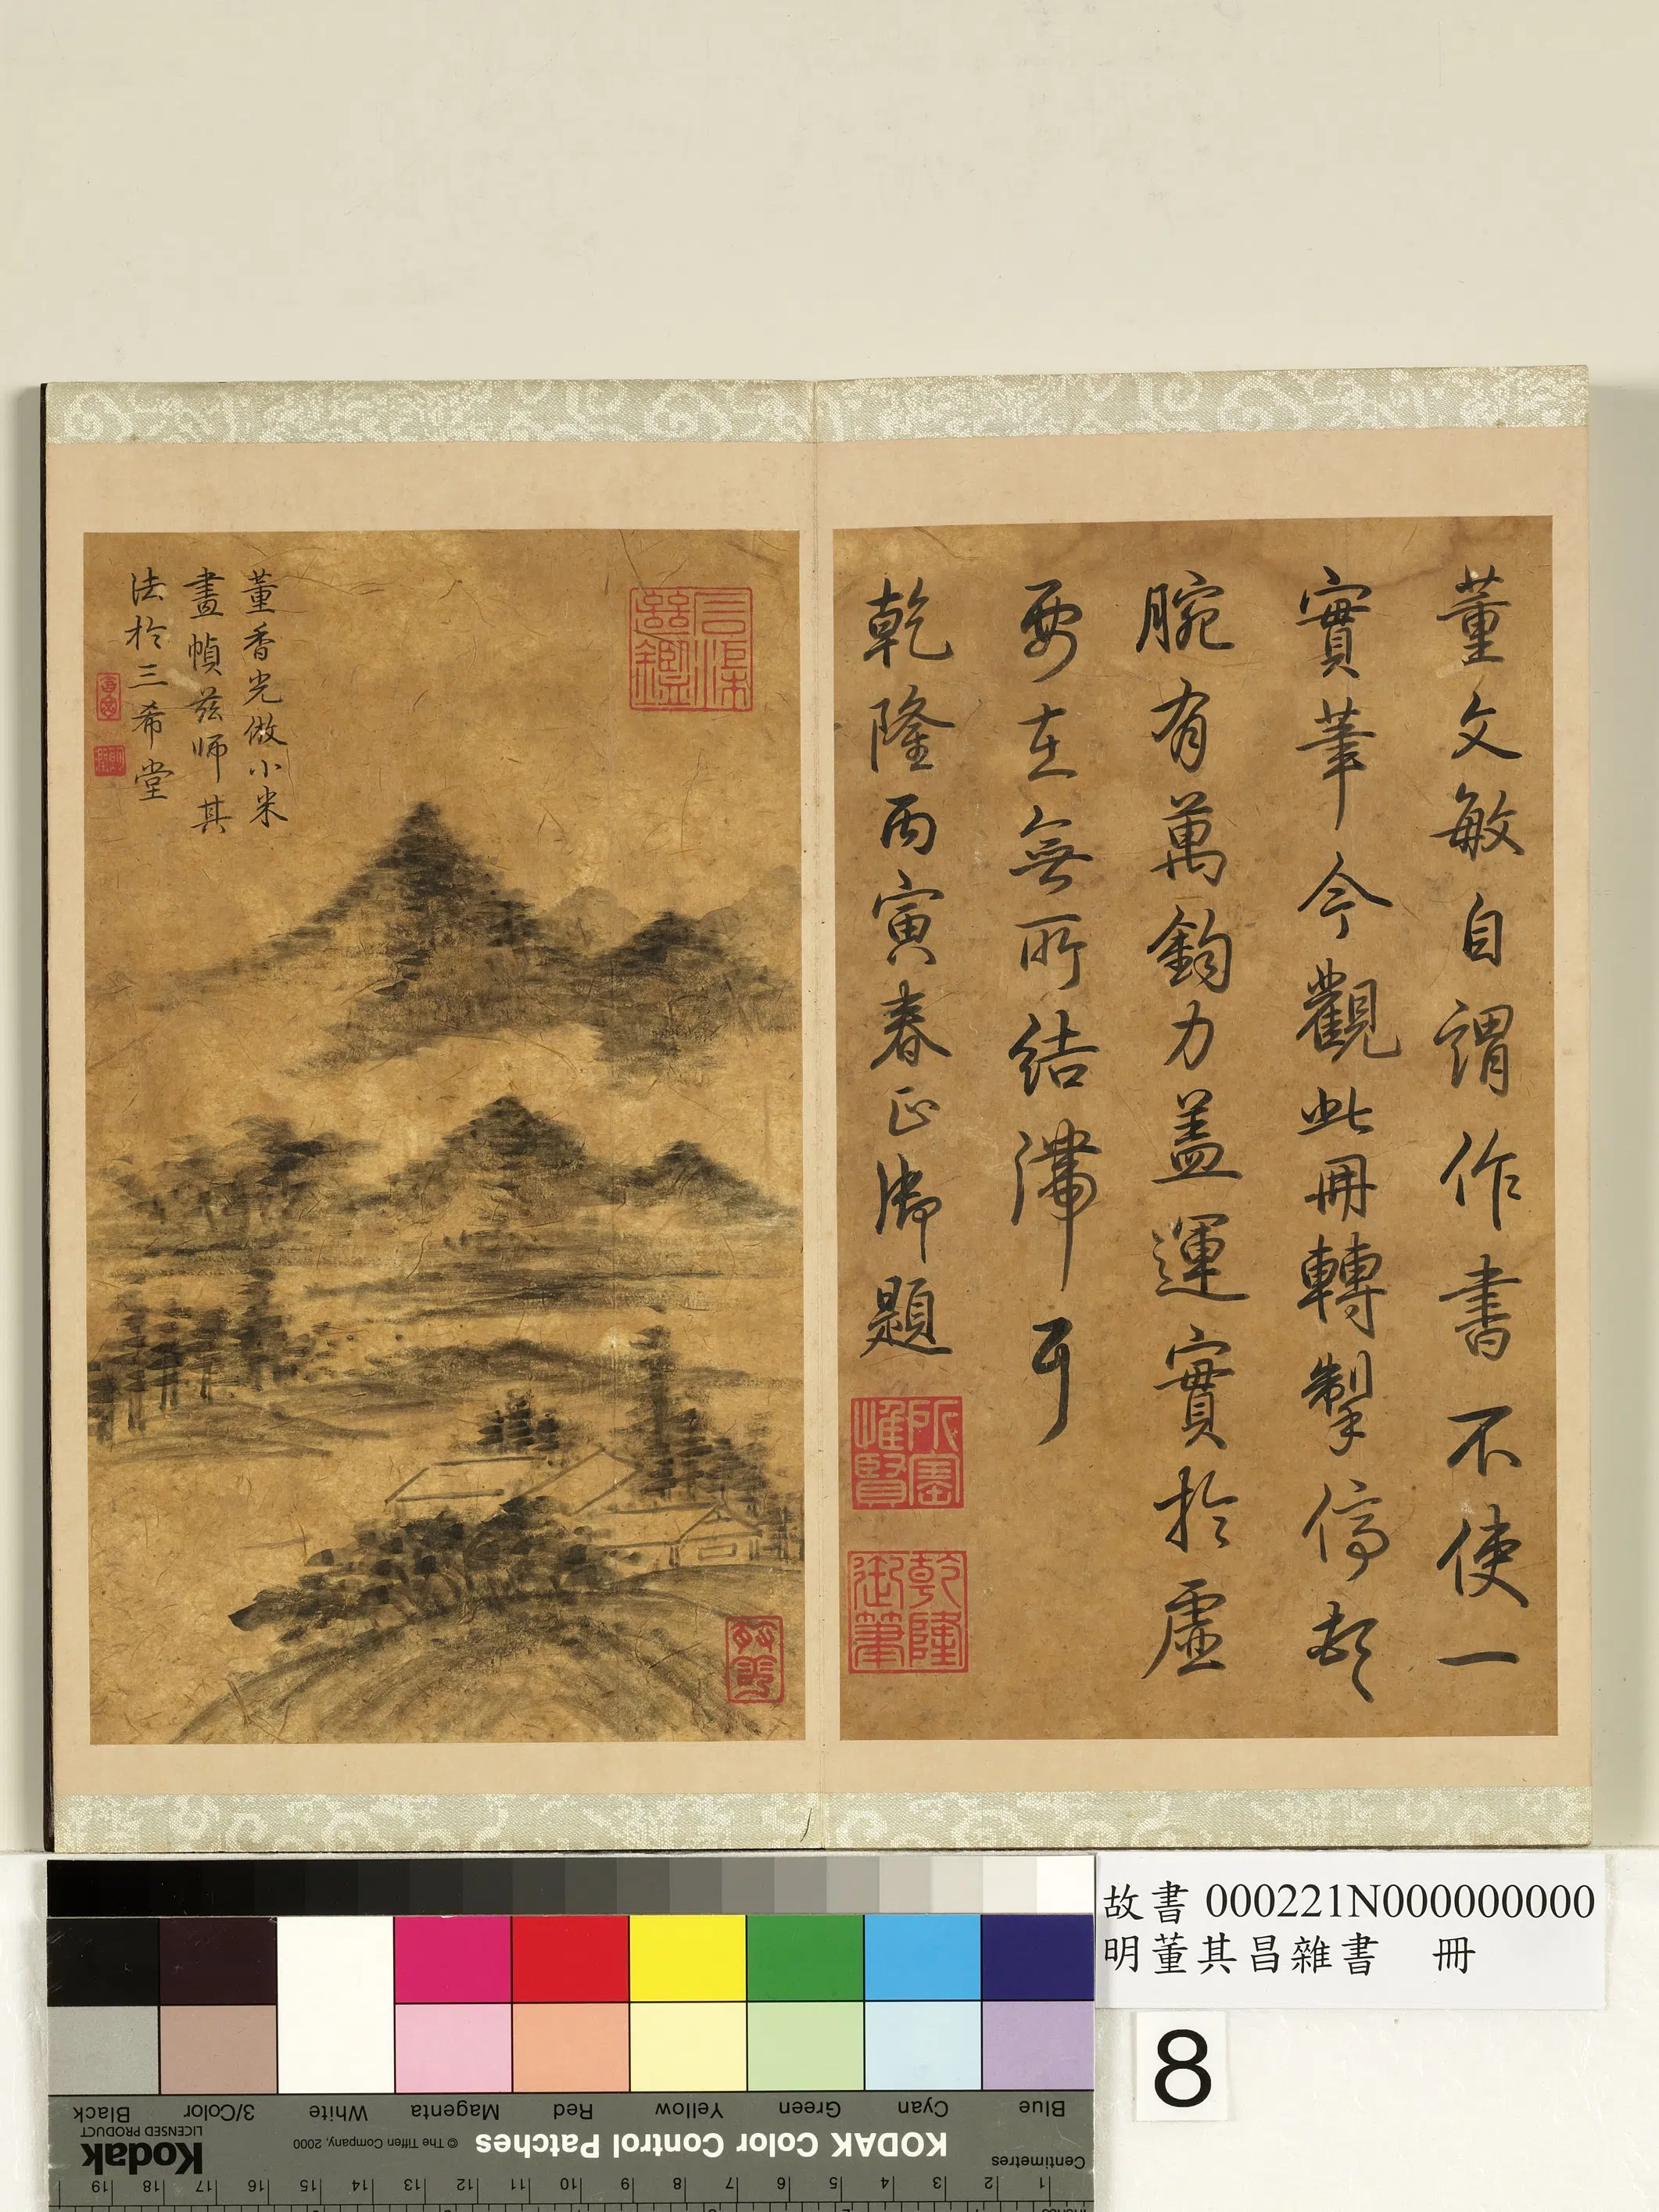 董文敏自謂作書不使一
實筆今觀此冊轉掣停頓
腕有萬鈞力蓋運實於虛
要在無所結滯耳
乾隆丙寅春正御題
所寶惟賢
乾隆御筆
董香光倣小米
畫幀茲師其
法於三希堂
故書 000221N000000000
明董其昌雜書 冊
8
Black
3/Color
White
Magenta
Red
Yellow
Green
Cyan
Blue
Kodak
LICENSED PRODUCT
© The Tiffen Company, 2000
KODAK Color Control Patches
Centimetres
19 18 17 16 15 14 13 12 11 10 9 8 7 6 5 4 3 2 1